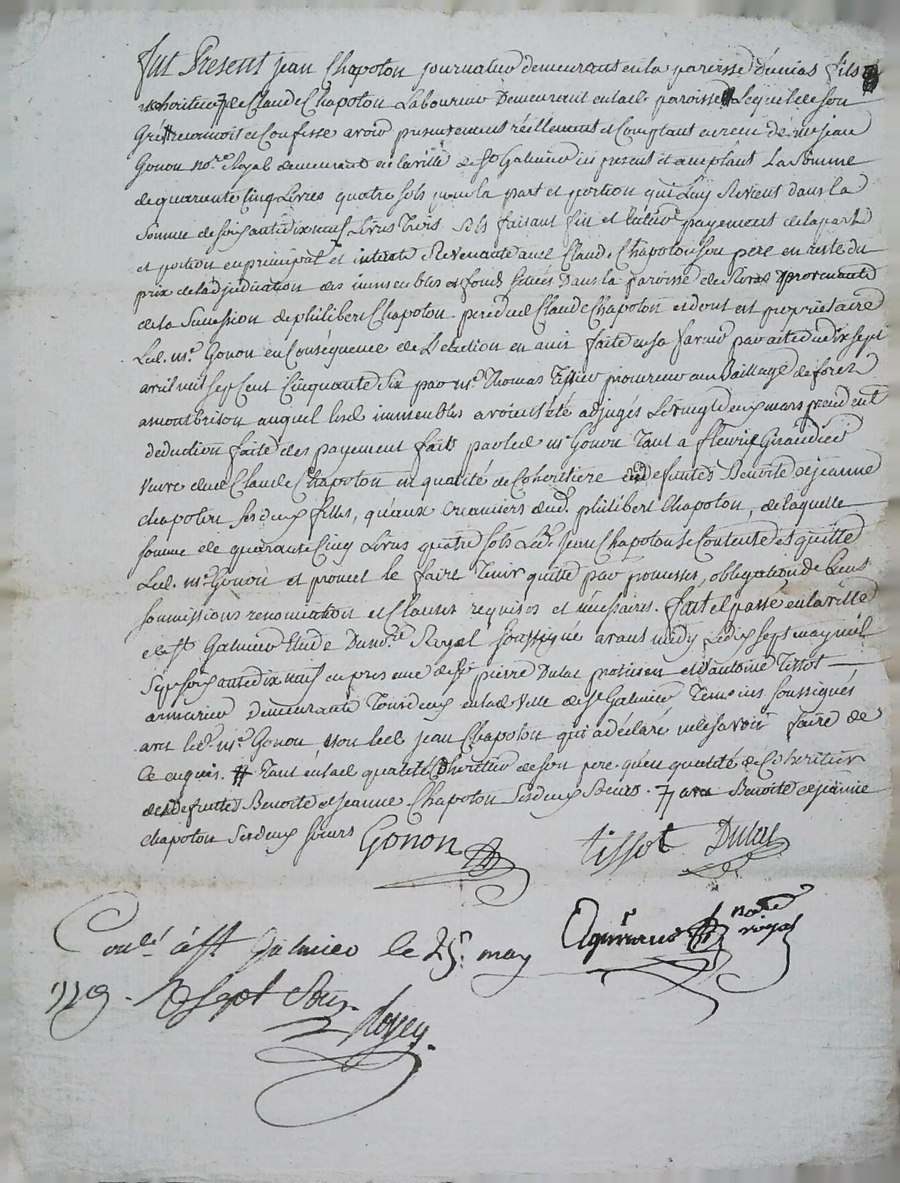 fut Present jean Chapoton journalier demeurant en la paroisse d'unias fils
coheritier de Claude Chapoton Laboureur Demeurant en lad. paroisse Lequel de son
Gré reconnoit et Confesse avoir presentement réellement et Comptant en reçu de me. jean
Gonon nore. Royal demeurant en la ville de St Galmier icy present et acceptant La Somme
de quarante Cinq Livres quatre sols pour la part et portion qui Luy Revient dans la
Somme de soixante dix neuf Livres Trois Sols faisant fin et Entier payement de la part
et portion en principal et interets Revenante aud Claude Chapoton son pere en reste du
prix de l'adjudication des immeubles et fonds situés Dans la paroisse de provenants
de la Succession de philibert Chapoton pere dud Claude Chapoton et dont est propriétaire
Led. me. Gonon en Conséquence de L'election en amis faite en sa faveur par acte du dix sept
avril mil sept Cent Cinquante Six par me. Thomas procureur au Baillage de forez
a montbrison auquel lesd. immeubles avoient été adjugés Le vingt deux mars precedent
deduction faite des payement faits par led me. Gonon Tant a fleurie Giraudier
veuve dud Claude Chapoton en qualité de Coheritiere defuntes Benoite et jeanne
chapoton ses deux filles, qu'aux creanciers dud. philibert Chapoton, de laquelle
somme de quarante Cinq Livres quatre sols Led. Jean Chapoton se Contente et quitte
Led. me. Gonon et promet le faire Tenir quitte par promesses, obligation de biens
soumissions renonciation et Clauses requises et nécessaires. fait et passé en la ville
de St Galmier Etude Du nore. Royal soussigné avant midy Le dix sept may mil
sept soixante dix neuf en presence de sr. pierre Dulac praticien et d'antoine Tissot
armurier Demeurants Tous deux en lad. ville de St Galmier Temoins soussignés
avec led. me. Gonon non led jean Chapoton qui a déclaré ne le savoir faire de
Ce enquis. # Tant en lad qualité de Coheritier de son pere qu'en qualité de Coheritier
desd defuntes Benoite et jeanne Chapoton ses deux Sœurs. Benoite et jeanne
chapoton ses deux sœurs Gonon Tissot Dulac
nore royal
Conlé. à St Galmier le 25e. may
1779. R sept Sous